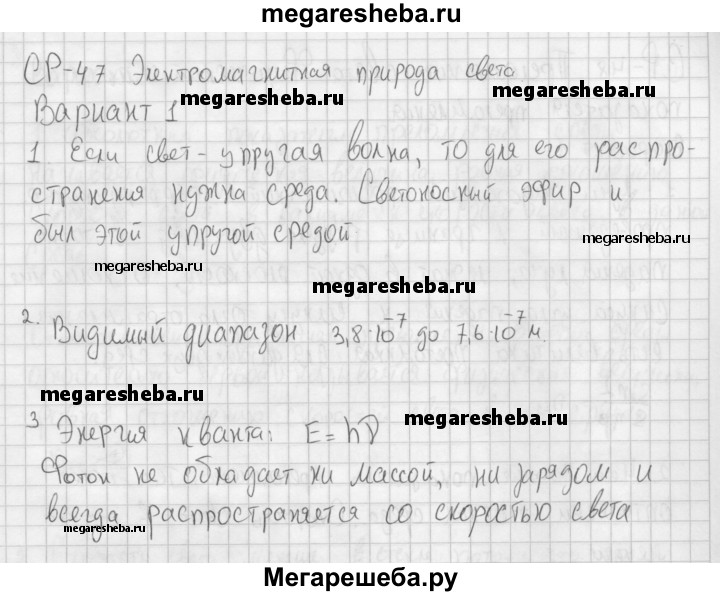 megaresheba.ru
СР-47 Электромагнитная природа света
megaresheba.ru megaresheba.ru
Вариант 1
1. Если свет - упругая волна, то для его распро-
странения нужна среда. Светоносный эфир и
был этой упругой средой
megaresheba.ru
megaresheba.ru
megaresheba.ru
2. Видимый диапазон 3,8·10⁻⁷ до 7,6·10⁻⁷ м.
megaresheba.ru
megaresheba.ru
3 Энергия кванта: E=hν
Фотон не обладает ни массой, ни зарядом и
всегда распространяется со скоростью света
megaresheba.ru
megaresheba.ru
Мегарешеба.ру